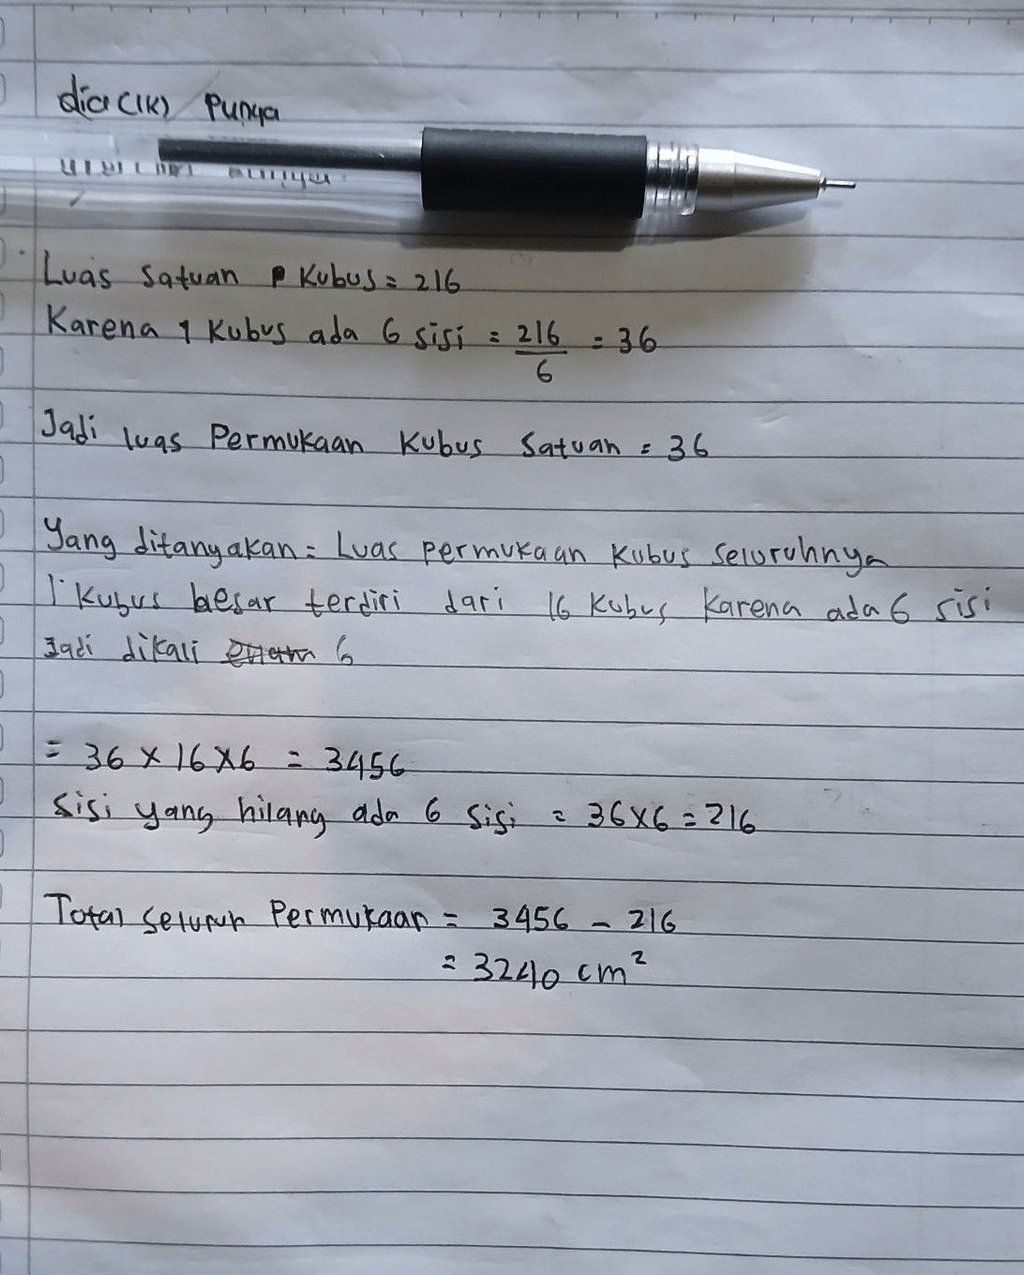 dia (IK) Punya
Luas Satuan Kubus = 216
Karena 1 Kubus ada 6 sisi = 216/6 = 36
Jadi luas Permukaan Kubus Satuan = 36
Yang ditanyakan = Luas permukaan Kubus Seluruhnya
1 Kubus besar terdiri dari 16 Kubus Karena ada 6 sisi
Jadi dikali 6
= 36 x 16 x 6 = 3456
Sisi yang hilang ada 6 Sisi = 36x6 = 216
Total Seluruh Permukaan = 3456 - 216
= 3240 cm²